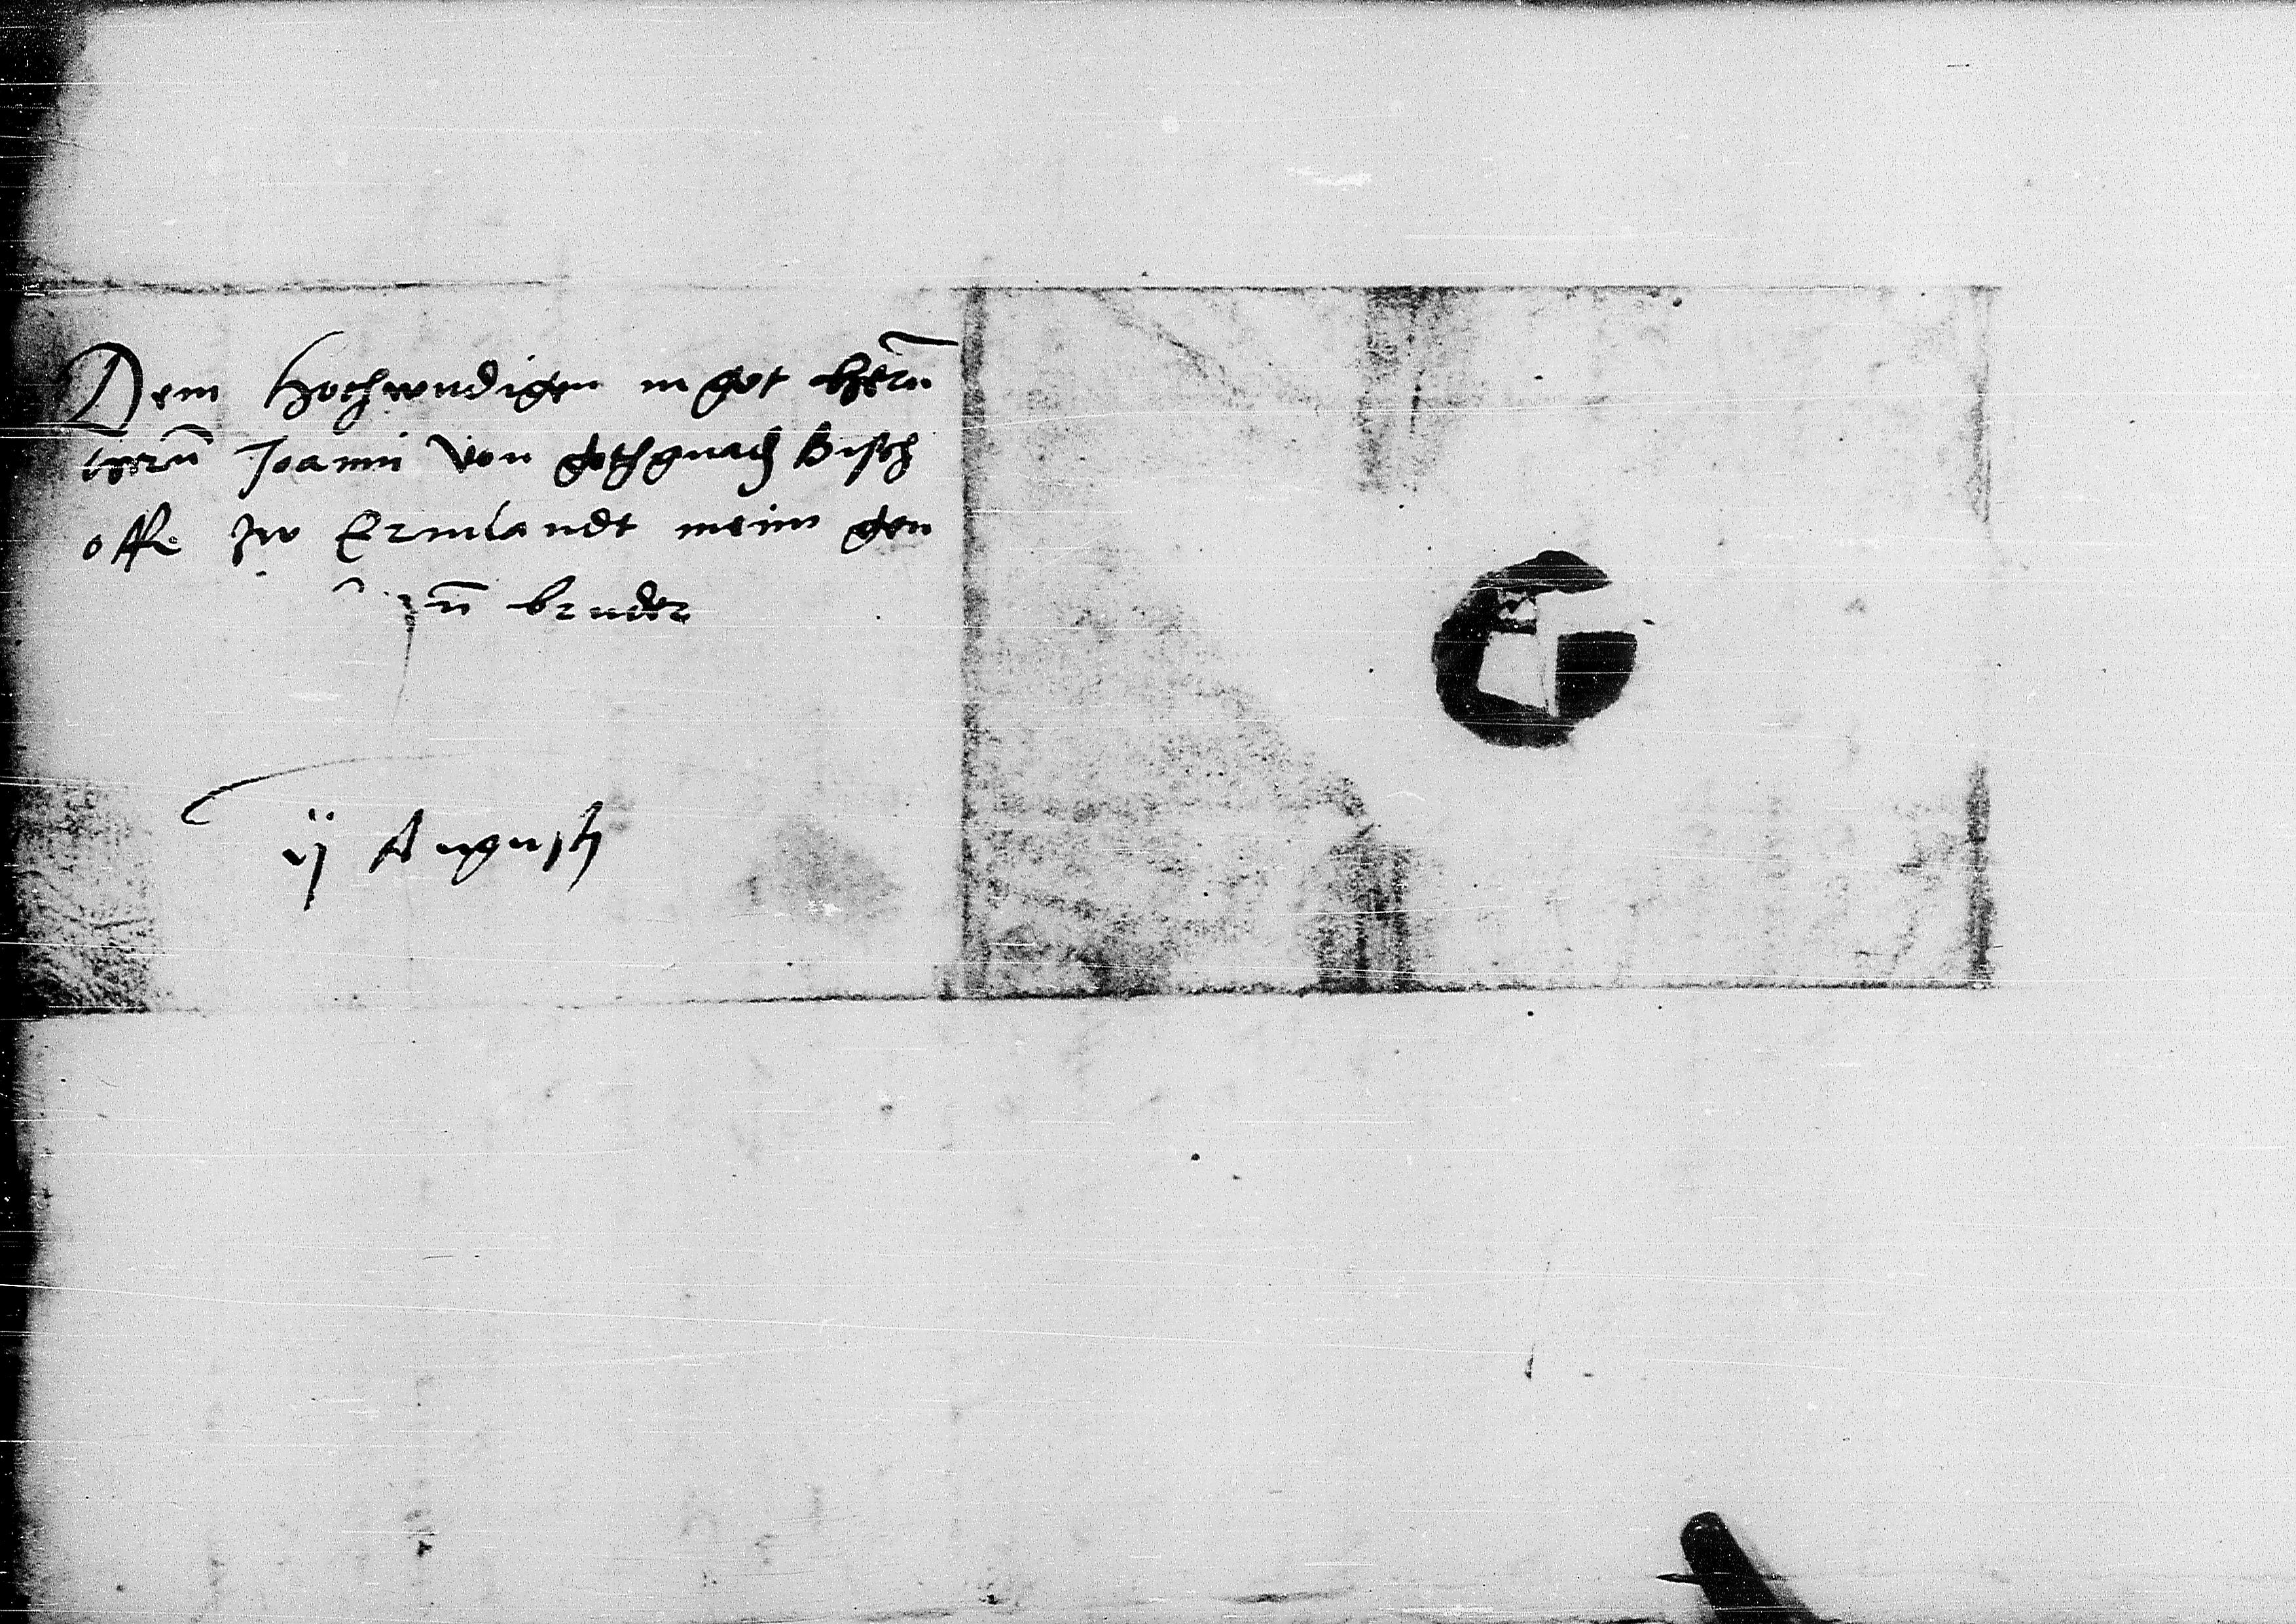 Dem hochwndigen in got hern̄
hern̄ Joanni von gotsgnadt Bisch
offe zw Ermlandt meim gen
n̄ bruder
ij Augusti